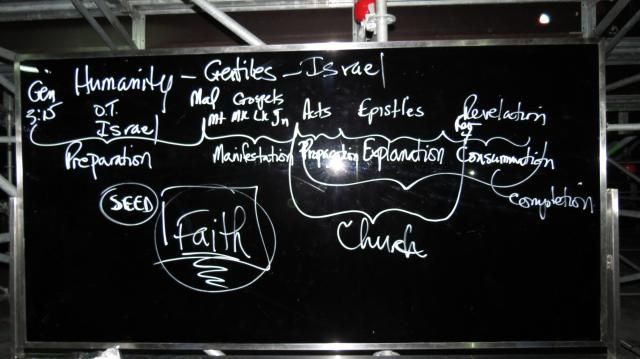 Humanity - Gentiles - Israel
Gen 3:15 O.T. Mal Gospels Acts Epistles Revelation
Israel Mt Mk Lk Jn Rev
Preparation Manifestation Propagation Explanation Consummation
Completion
SEED
Faith
Church